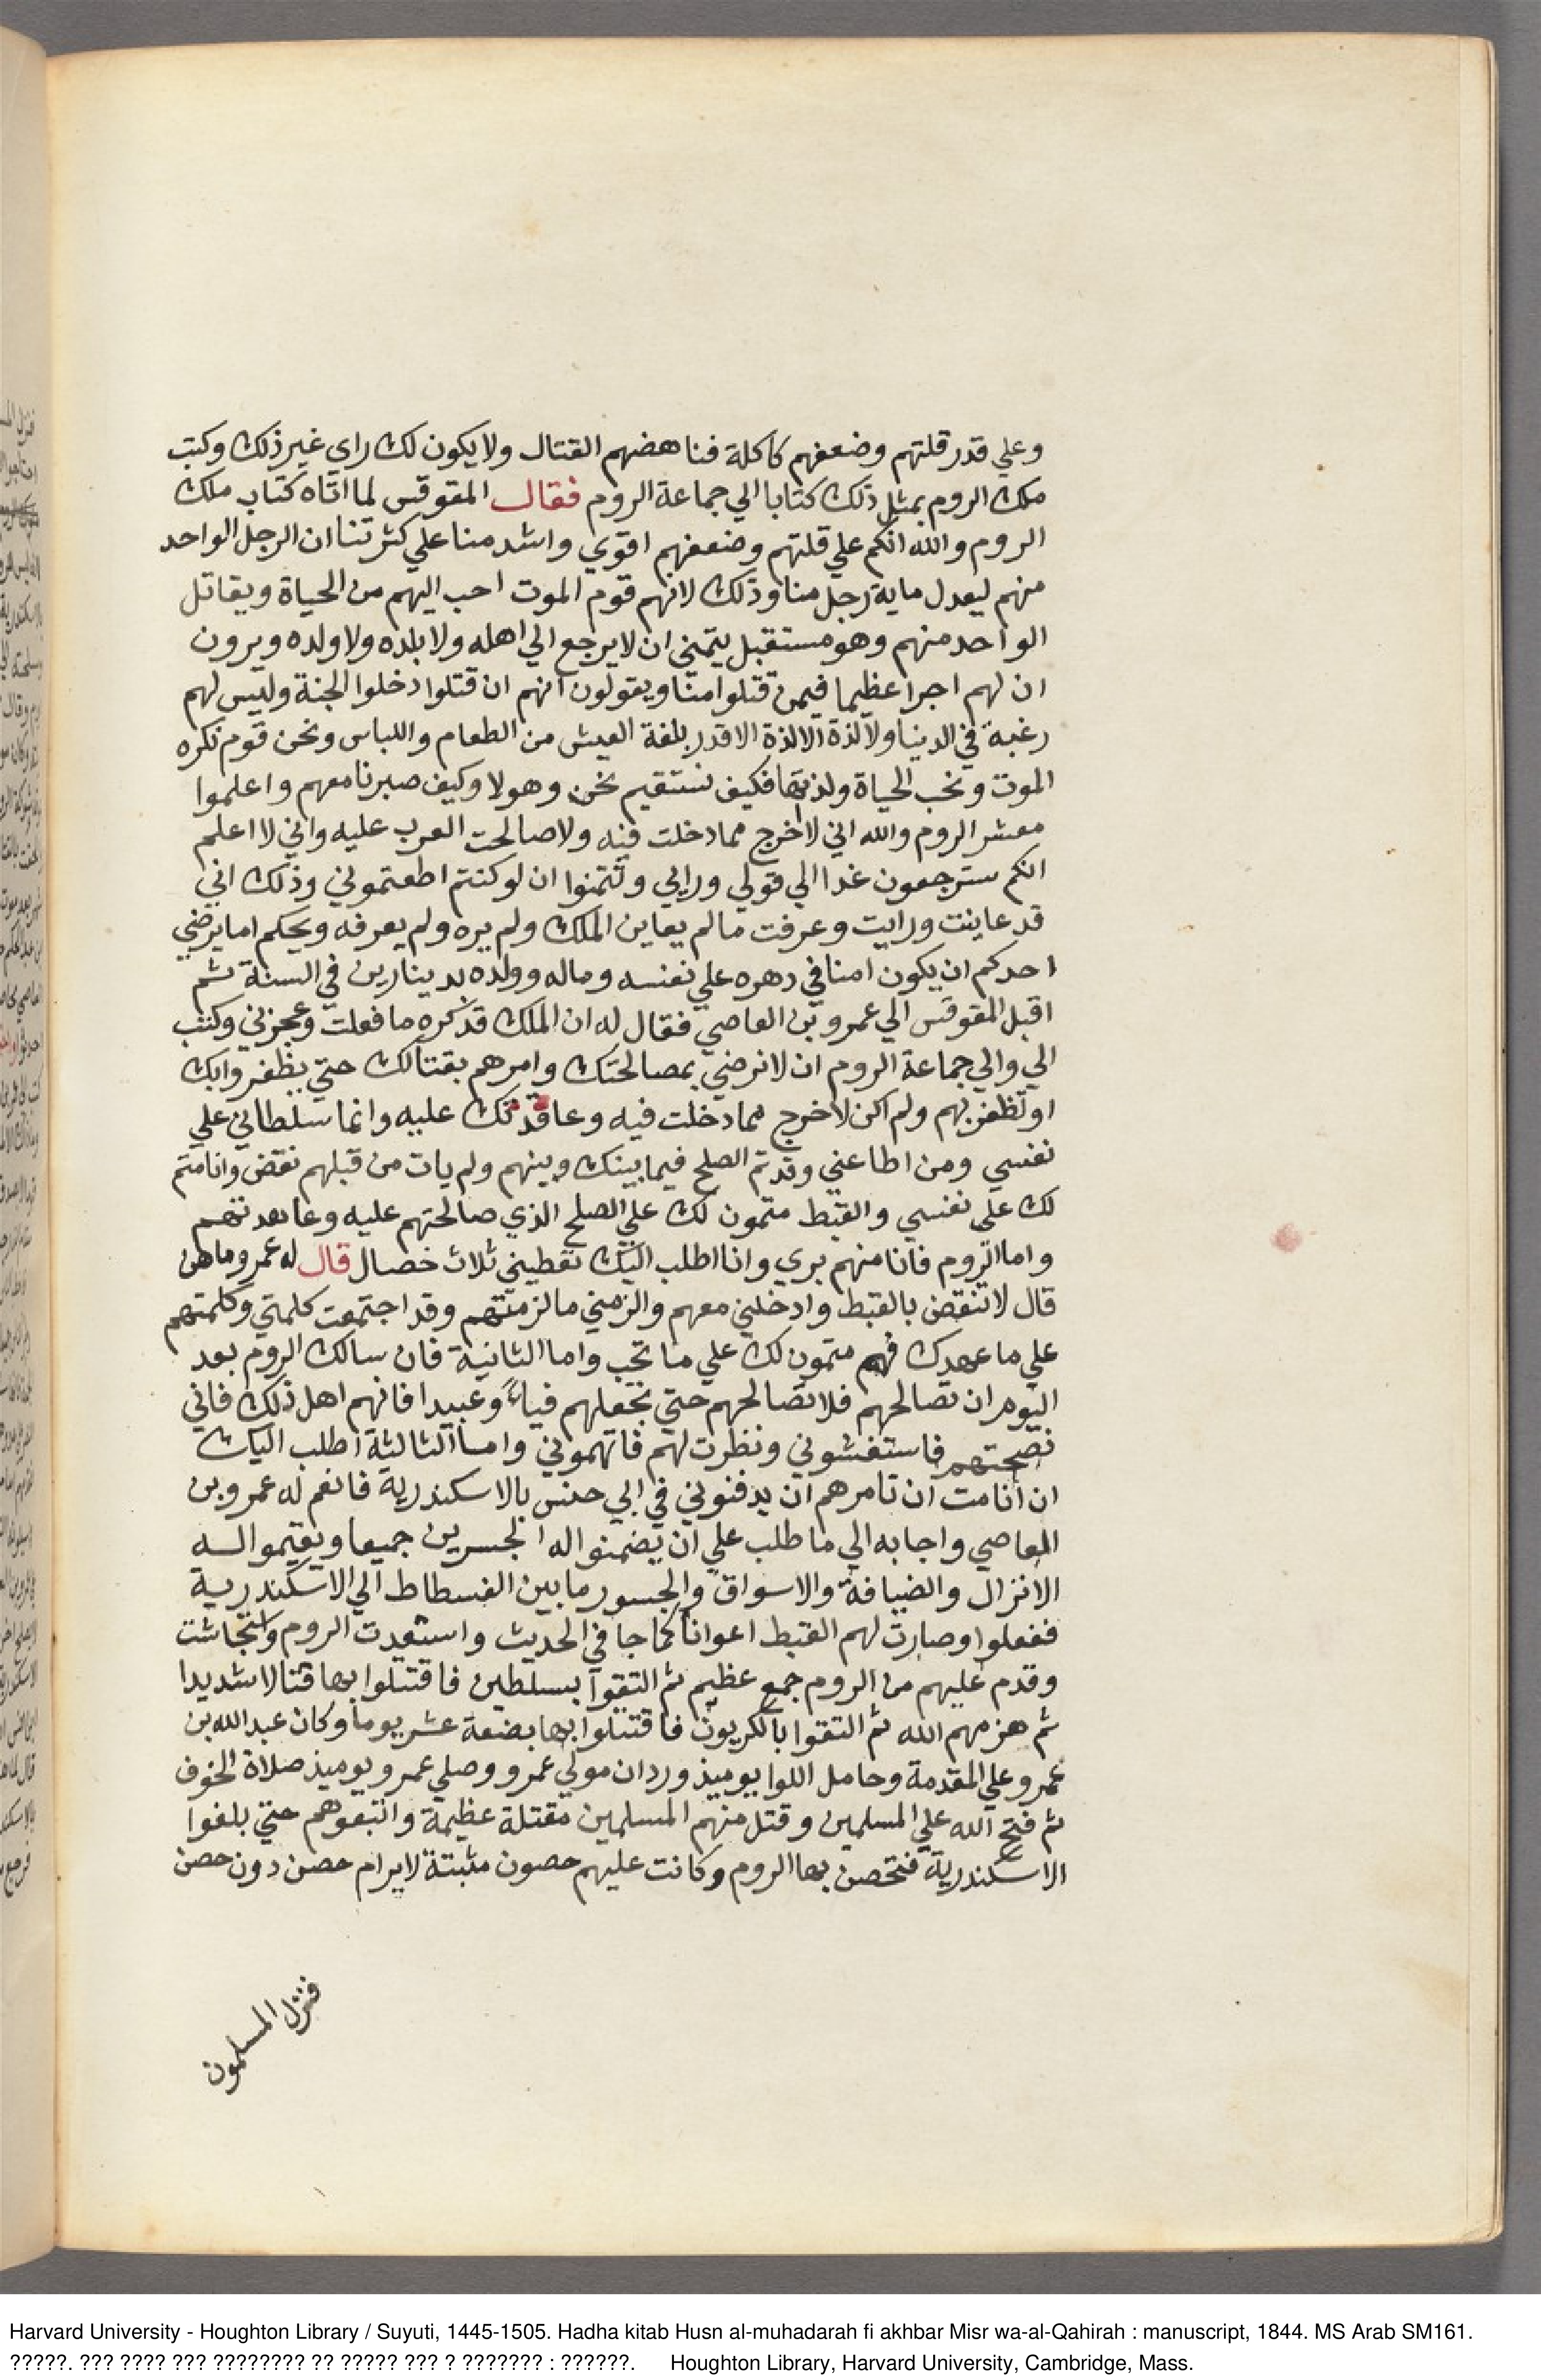 وعلي قدر قلتهم وضعفهم كاكلة فناهضهم القتال ولا يكون لك راى غير ذلك وكتب
ملك الروم بمثل ذلك كتابا الي جماعة الروم فقال المقوقس لما اتاه كتاب ملك
الروم والله انكم علي قلتهم وضعفهم اقوي واشد منا علي كثرتنا ان الرجل الواحد
منهم ليعدل ماية رجل منا وذلك لانهم قوم الموت احب اليهم من الحياة ويقاتل
الواحد منهم وهو مستقبل يتمني ان لا يرجع الي اهله ولا بلده ولا ولده ويرون
ان لهم اجرا عظيما فيمن قتلوا منا ويقولون انهم ان قتلوا دخلوا الجنة وليس لهم
رغبة في الدنيا ولا لذة الا لذة الا قدر بلغة العيش من الطعام واللباس ونحن قوم نكره
الموت ونحب الحياة ولذتها فكيف نستقيم نحن وهولا وكيف صبرنا معهم واعلموا
معشر الروم والله اني لا اخرج مما دخلت فيه ولا صالحت العرب عليه واني لا اعلم
انكم سترجعون غدا الي قولي ورايي وتتمنوا ان لو كنتم اطعتموني وذلك اني
قد عاينت ورايت وعرفت ما لم يعاين الملك ولم يره ولم يعرفه ويحكم اما يرضي
احدكم ان يكون امنا في دهره علي نفسه وماله وولده بدينارين في السنة ثم
اقبل المقوقس الي عمرو بن العاصي فقال له ان الملك قد كره ما فعلت وعجزني وكتب
الي والي جماعة الروم ان لا نرضي بمصالحتك وامرهم بقتالك حتي يظفروا بك
او تظفر بهم ولم اكن لاخرج مما دخلت فيه وعاقدتك عليه وانما سلطاني علي
نفسي ومن اطاعني وقد تم الصلح فيما بينك وبينهم ولم يات من قبلهم نقض وانا متم
لك علي نفسي والقبط متمون لك علي الصلح الذي صالحتهم عليه وعاهدتهم
واما الروم فانا منهم بري وانا اطلب اليك تعطيني ثلاث خصال قال له عمرو ماهن
قال لا تنقض بالقبط وادخلني معهم والزمني ما لزمتهم وقد اجتمعت كلمتي وكلمتهم
علي ما عهدك فهم متمون لك علي ما تحب واما الثانية فان سالك الروم بعد
اليوم ان تصالحهم فلا تصالحهم حتي تجعلهم فياءً وعبيدا فانهم اهل ذلك فاني
نصحتهم فاستغشوني ونظرت لهم فاتهموني واما الثالثة اطلب اليك
ان انا مت ان تامرهم ان يدفنوني في ابي حنس بالاسكندرية فانعم له عمرو بن
العاصي واجابه الي ما طلب علي ان يضمنوا له الجسرين جميعا ويقيموا له
الانزال والضيافة والاسواق والجسور ما بين الفسطاط الي الاسكندرية
ففعلوا وصارت لهم القبط اعوانا كما جا في الحديث واستعدت الروم واستجاشت
وقدم عليهم من الروم جمع عظيم ثم التقوا بسلطيس فاقتتلوا بها قتالا شديدا
ثم هزمهم الله ثم التقوا بالكريون فاقتتلوا بها بضعة عشر يوما وكان عبد الله بن
عمرو علي المقدمة وحامل اللوا يوميذ وردان مولي عمرو وصلي عمرو يوميذ صلاة الخوف
ثم فتح الله علي المسلمين وقتل منهم المسلمين مقتلة عظيمة واتبعوهم حتي بلغوا
الاسكندرية فتحصن بها الروم وكانت عليهم حصون مثبتة لا يرام حصن دون حصن
فنزل المسلمون
Harvard University - Houghton Library / Suyuti, 1445-1505. Hadha kitab Husn al-muhadarah fi akhbar Misr wa-al-Qahirah : manuscript, 1844. MS Arab SM161.
?????. ??? ???? ??? ???????? ?? ????? ??? ? ??????? : ??????. Houghton Library, Harvard University, Cambridge, Mass.